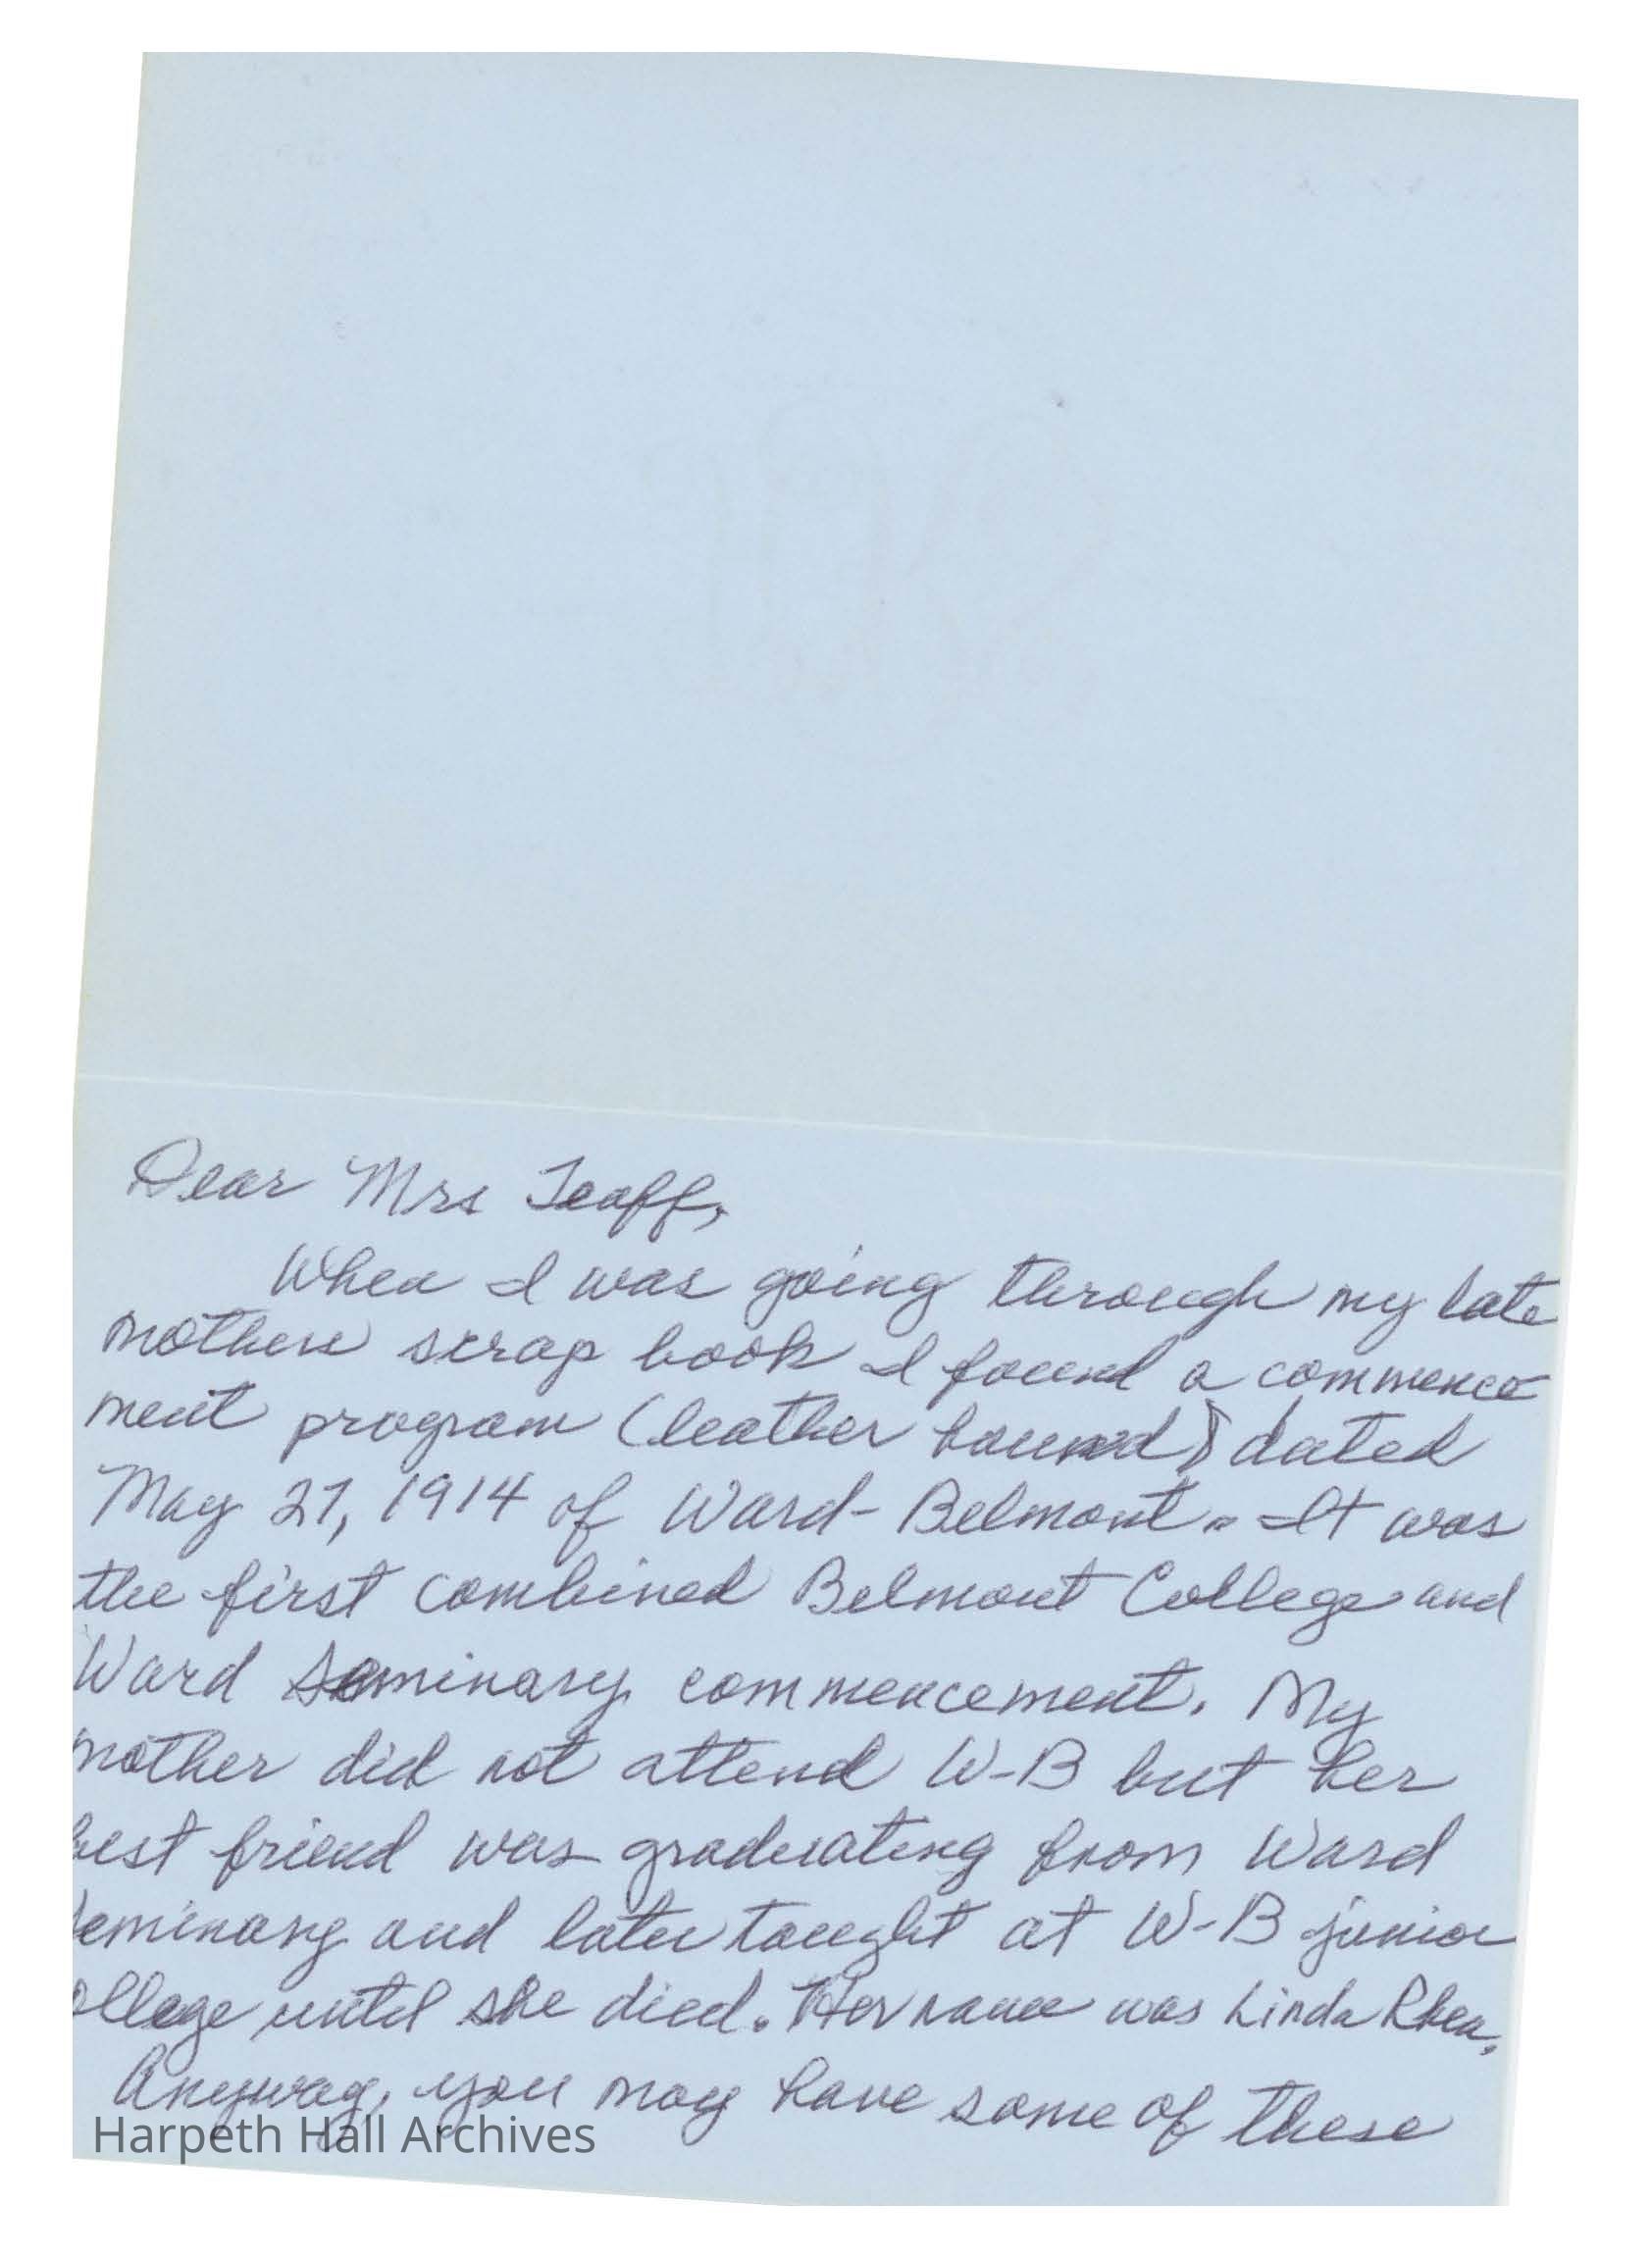 Dear Mrs Teaff,
When I was going through my late
mothers scrap book I found a commence
ment program (leather bound) dated
May 27, 1914 of Ward-Belmont. It was
the first combined Belmont College and
Ward Seminary commencement. My
mother did not attend W-B but her
best friend was graduating from Ward
Seminary and later taught at W-B junior
ollege until she died. Her name was Linda Rhea.
Anyway, you may have some of these
Harpeth Hall Archives